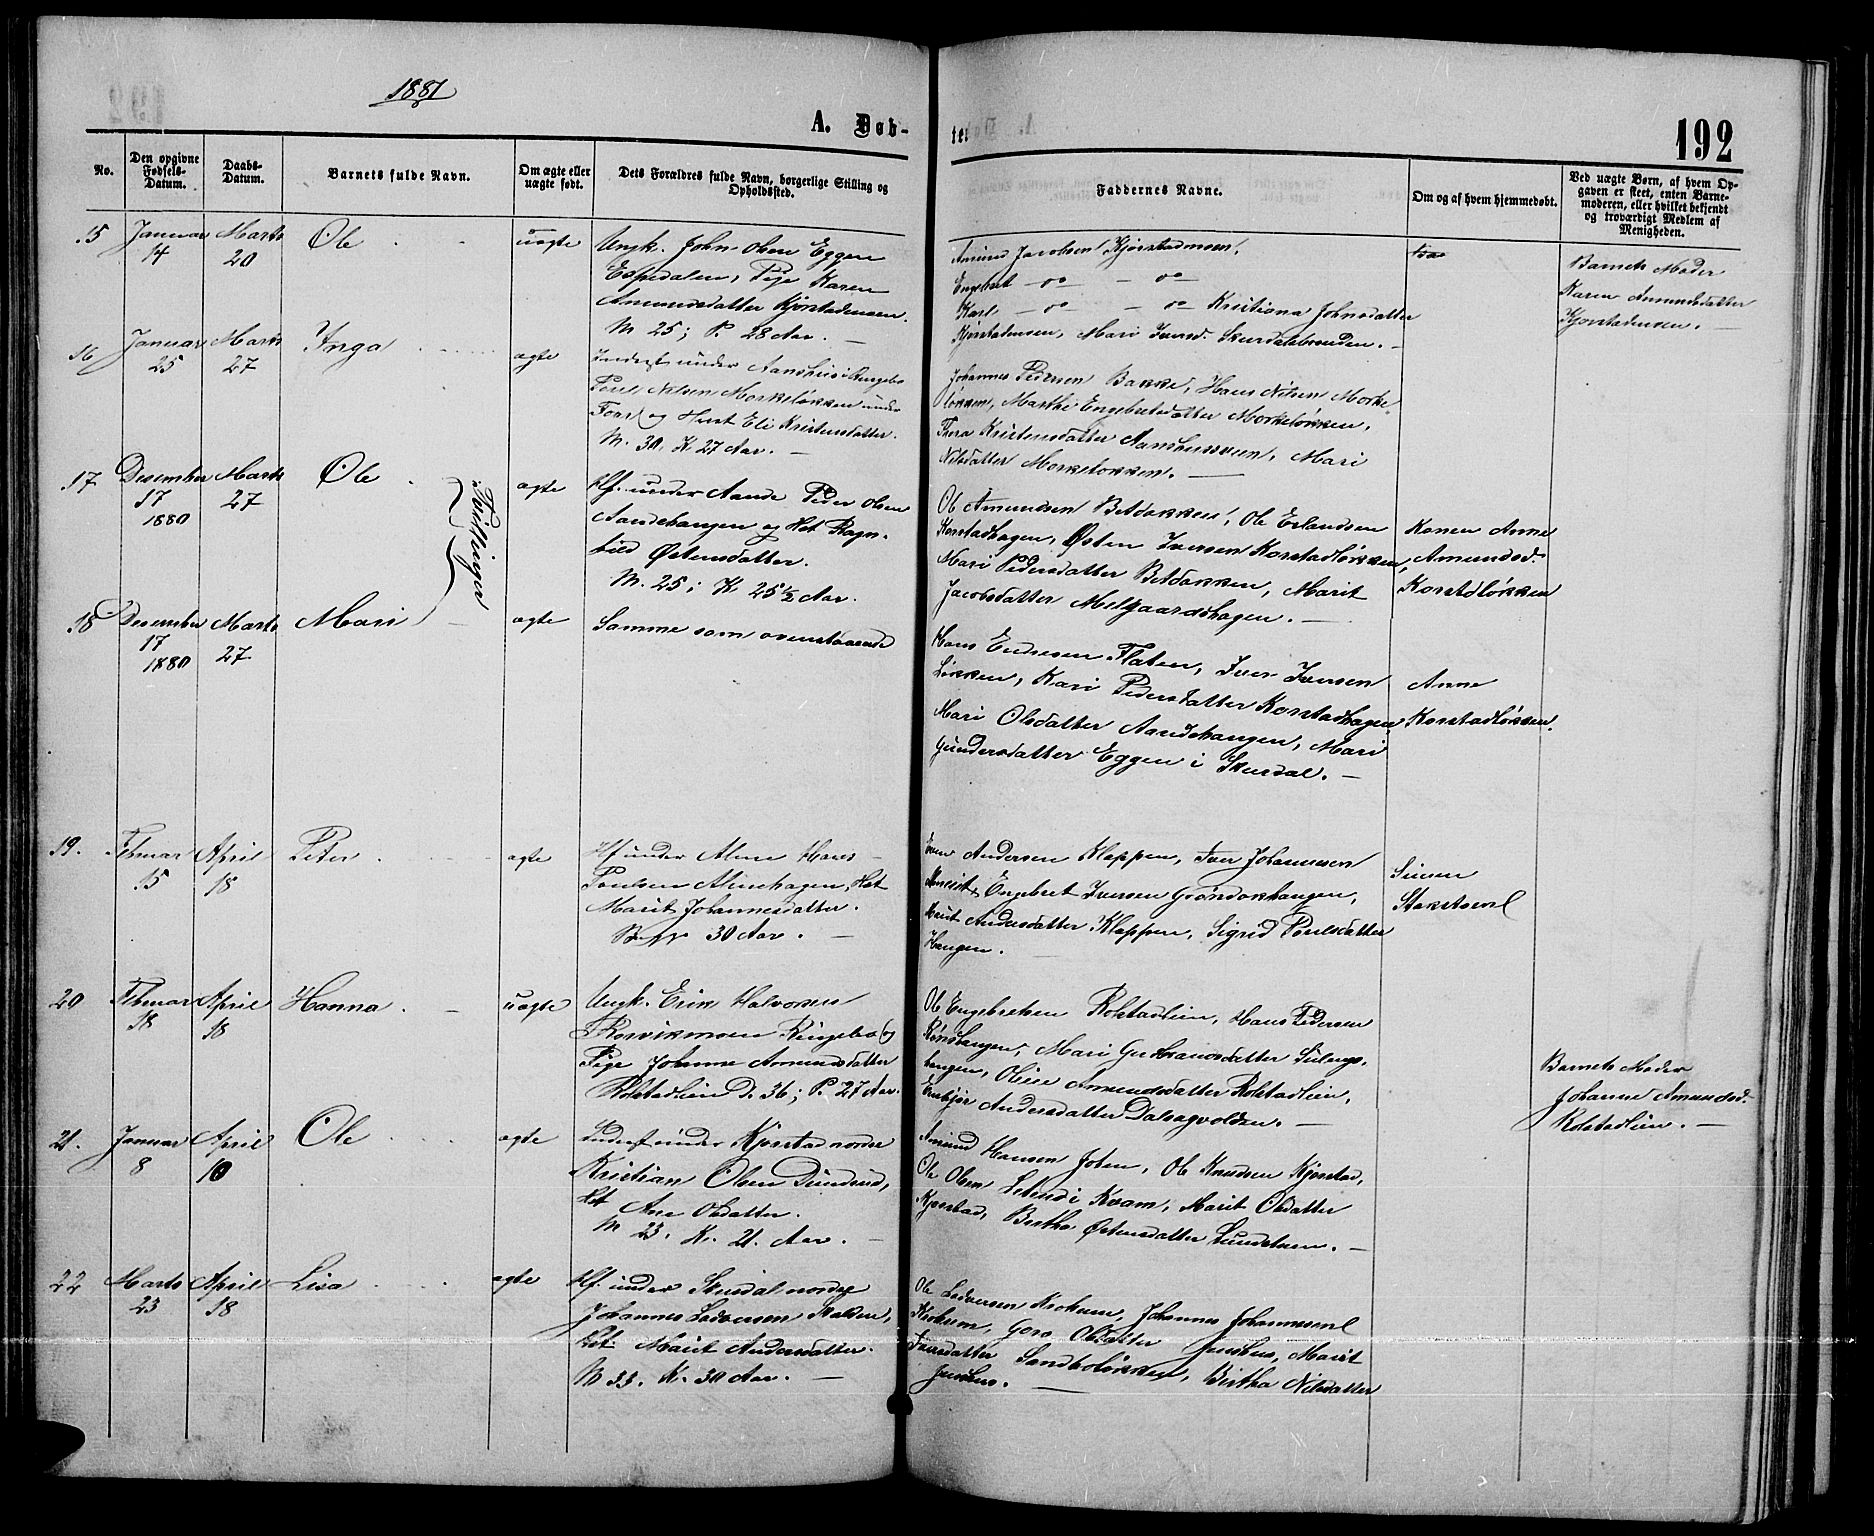 1881
A. Døb-
tet
192
No.
Den opgivne
Fødsels-
Datum.
Daabs-
Datum.
Barnets fulde Navn.
Om ægte eller
uægte født.
Dets Forældres fulde Navn, borgerlige Stilling og
Opholdssted.
Faddernes Navne.
Om og af hvem hjemmedøbt.
Ved uægte Børn, af hvem Op-
gaven er skeet, enten Barne-
moderen, eller hvilket bekjendt
og troværdigt Medlem af
Menigheden.
15 Januar 14 Marts 20 Ole uægte
Ungk. John Olsen Eggen
Espedalen, Pige Karen
Amundsdatter Kjørstadensen.
M 25; P. 28 Aar.
Amund Jacobsen Kjørstadensen,
Engebret
Karl Kristiana Johnsdatter
Kjørstadensen, Mari Iversd.
Barnets Moder
Karen Amundsdatter
Kjørstadensen.
16 Januar 25 Marts 27 Inga ægte
Inderst under Aanshus i Ringebo
Poul Nilsen Morkeløkken under
og Hust Eli Kristensdatter.
M. 30. K 27 Aar.
Johannes Pedersen Bakke, Hans Nilsen Morke-
løkken, Marthe Engebretsdatter Morkeløkken,
Thera Kristensdatter Mari
Nilsdatter Morkeløkken.
17 Desember 17 1880 Marts 27 Ole Tvillinger ægte
Hf. under Aande Peder Olsen
Aandehaugen og Hst. Ragn-
hild Østensdatter.
M. 25; K 25 ½ Aar.
Ole Amundsen Ole Erlandsen
Korstadhagen, Østen Iversen Korstadløkken,
Mari Pedersdatter Marit
Jacobsdatter Melgaardshagen.
Konen Anne
Amundsd.
Korstdløkken
18 Desember 17 1880 Marts 27 Mari ægte
Samme som ovenstaaende
Hans Flaten, Iver Iversen
Løkken, Kari Pedersdatter Korstadhagen,
Mari Olsdatter Aandehaugen, Mari
Gundersdatter Eggen i Skurdal.
Anne
Korstadløkken.
19. Februar 15 April 18 Peter ægte
Hf under Alme Hans
Poulsen Almehagen, Hst
Marit Johannesdatter.
30 Aar.
Andersen Klappen, Iver Johannesen
Engebret Iversen
Marit Andersdatter Klappen, Sigrid Poulsdatter
Haugen.
20 Februar 18 April 18 Hanna uægte
Ungk. Erik Halvorsen
Ringebo og
Pige Johanne Amundsdatter
Rolstadlien D. 36; P. 27 Aar.
Ole Engebretsen Rolstadlien, Hans Pedersen
Mari Gudbrandsdatter
haugen, Oline Amundsdatter Rolstadlien,
Andersdatter Dalsegvolden.
Barnets Moder
Johanne Amundsd.
Rolstadlien.
21. Januar 8 April 10 Ole ægte
Inderst under Kjørstad nordre
Kristian Olsen
Hst. Ane Olsdatter.
M 23. K. 21. Aar.
Amund Hansen Ole Knudsen Kjørstad,
Ole Olsen i Kvam, Marit Olsdatter
Kjørstad, Bertha Østensdatter
22 Marts 23 April 18 Lisa ægte
Hf. under Skurdal nordre
Johannes
Hst. Marit Andersdatter.
M 33. K. 30 Aar.
Ole Krokum, Johannes Johannesen
Krokum, Goro Olsdatter Marit
Iversdatter Bertha Nilsdatter